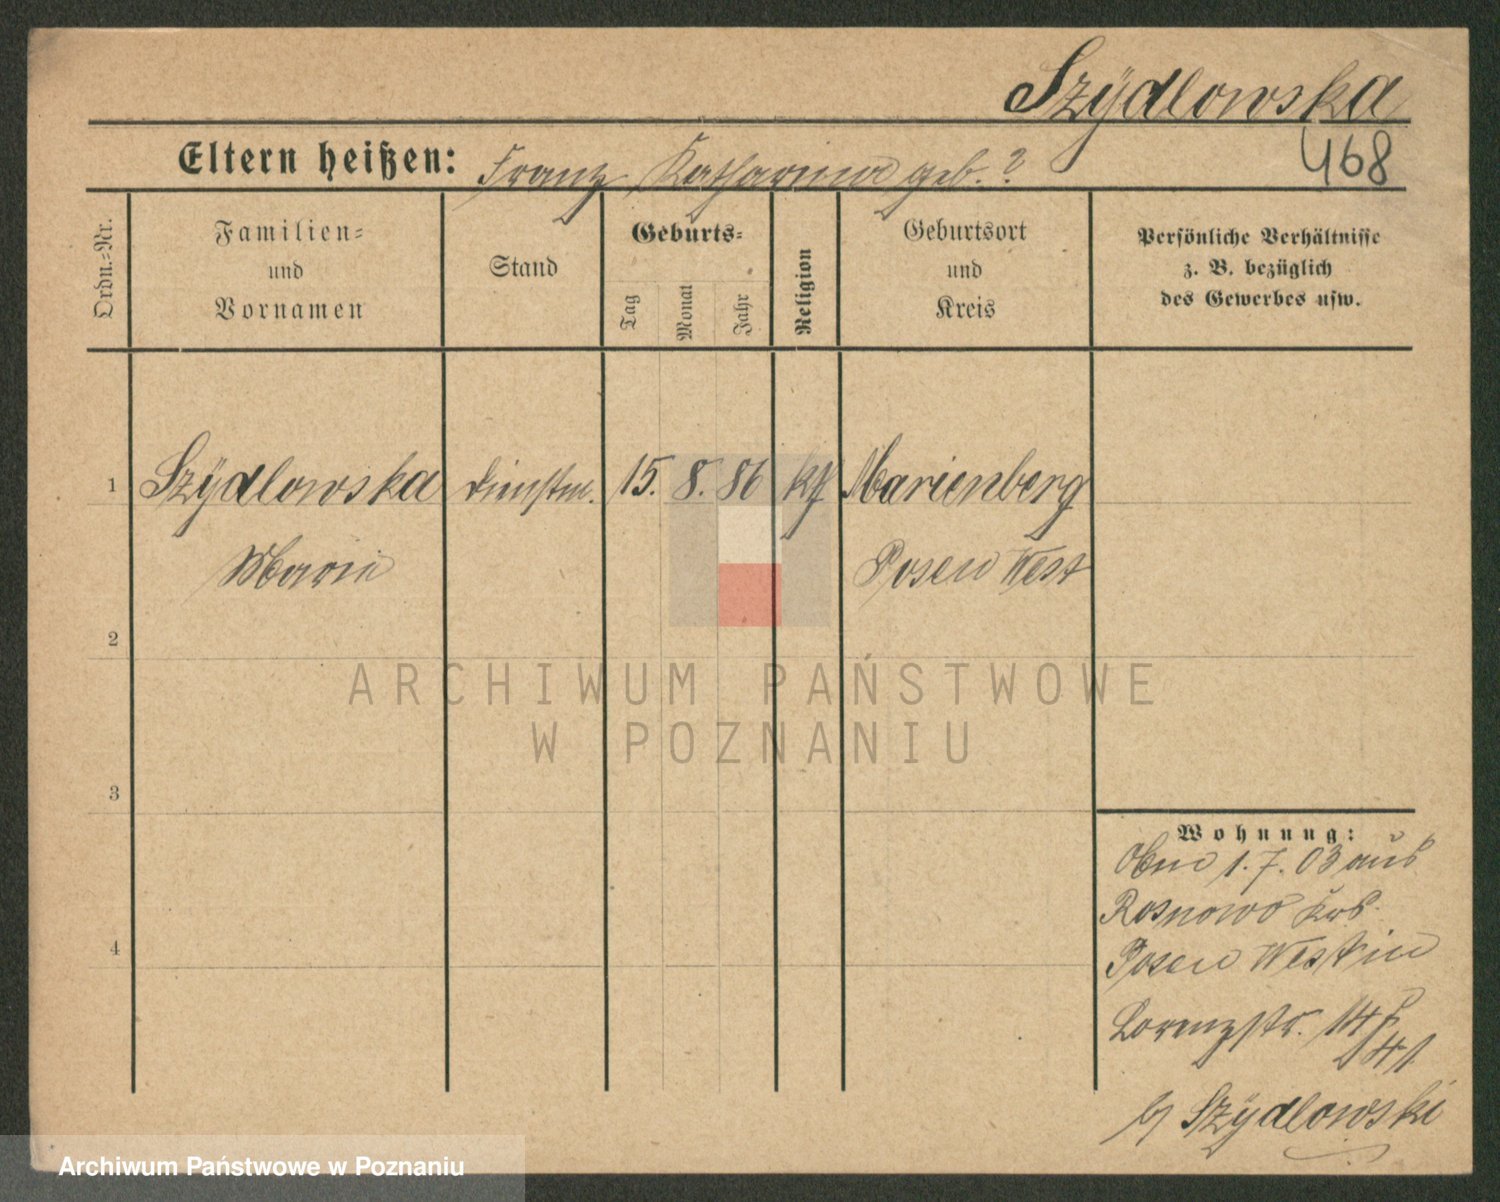 Szÿdlowska
468
Eltern heißen: Franz Katharina geb. ?
Ordn.=Nr.
Familien=
und
Vornamen
Stand
Geburts=
Tag
Monat
Jahr
Religion
Geburtsort
und
Kreis
Persönliche Verhältnisse
z. B. bezüglich
des Gewerbes usw.
1 Szÿdlowska Dienstm. 15. 8. 86 kt Marienberg
Marie Posen West
2
3
4
Wohnung:
1.7.03 aus
Rosnowo Krs.
Posen West in
Lorenzstr. 14
b/ Szÿdlowski
ARCHIWUM PAŃSTWOWE
W POZNANIU
Archiwum Państwowe w Poznaniu